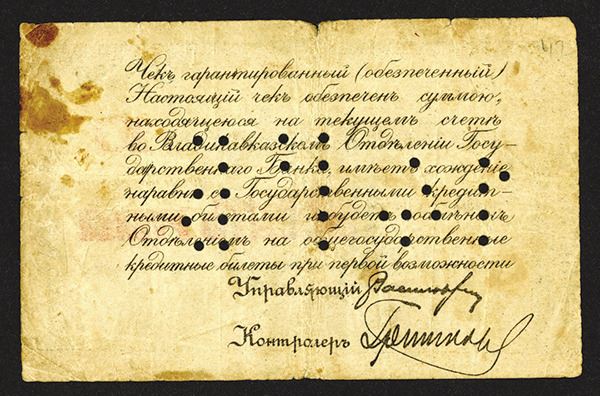 417
Чекъ гарантированный (обезпеченный)
Настоящій чекъ обезпеченъ суммою,
находящеюся на текущемъ счетѣ
во Владикавказскомъ Отдѣленіи Госу-
дарственнаго Банка, имѣетъ хожденіе
наравнѣ съ Государственными кредит-
ными билетами и будетъ обмѣненъ
Отдѣленіемъ на общегосударственные
кредитные билеты при первой возможности
Управляющій
Контролеръ